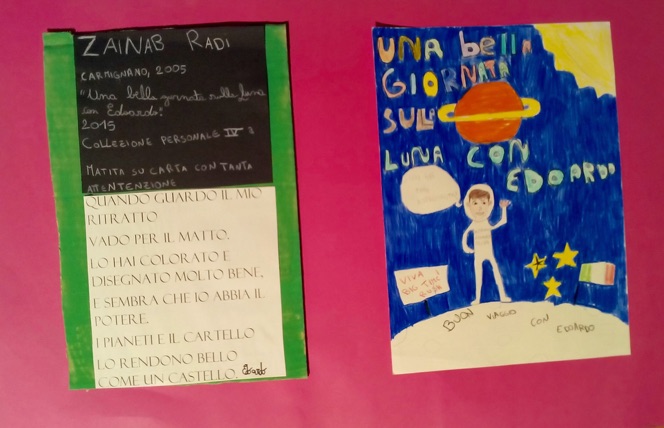 ZAINAB RADI
CARMIGNANO, 2005
"Una bella giornata sulla luna
con Edoardo".
2015
COLLEZIONE PERSONALE IV
MATITA SU CARTA CON TANTA
ATTENTENZIONE
QUANDO GUARDO IL MIO
RITRATTO
VADO PER IL MATTO.
LO HAI COLORATO E
DISEGNATO MOLTO BENE,
E SEMBRA CHE IO ABBIA IL
POTERE.
I PIANETI E IL CARTELLO
LO RENDONO BELLO
COME UN CASTELLO.
Edoardo
UNA bella
GIORNATA
SULLA
LUNA CON
EDOARDO
VIVA
BUON VIAGGIO CON EDOARDO